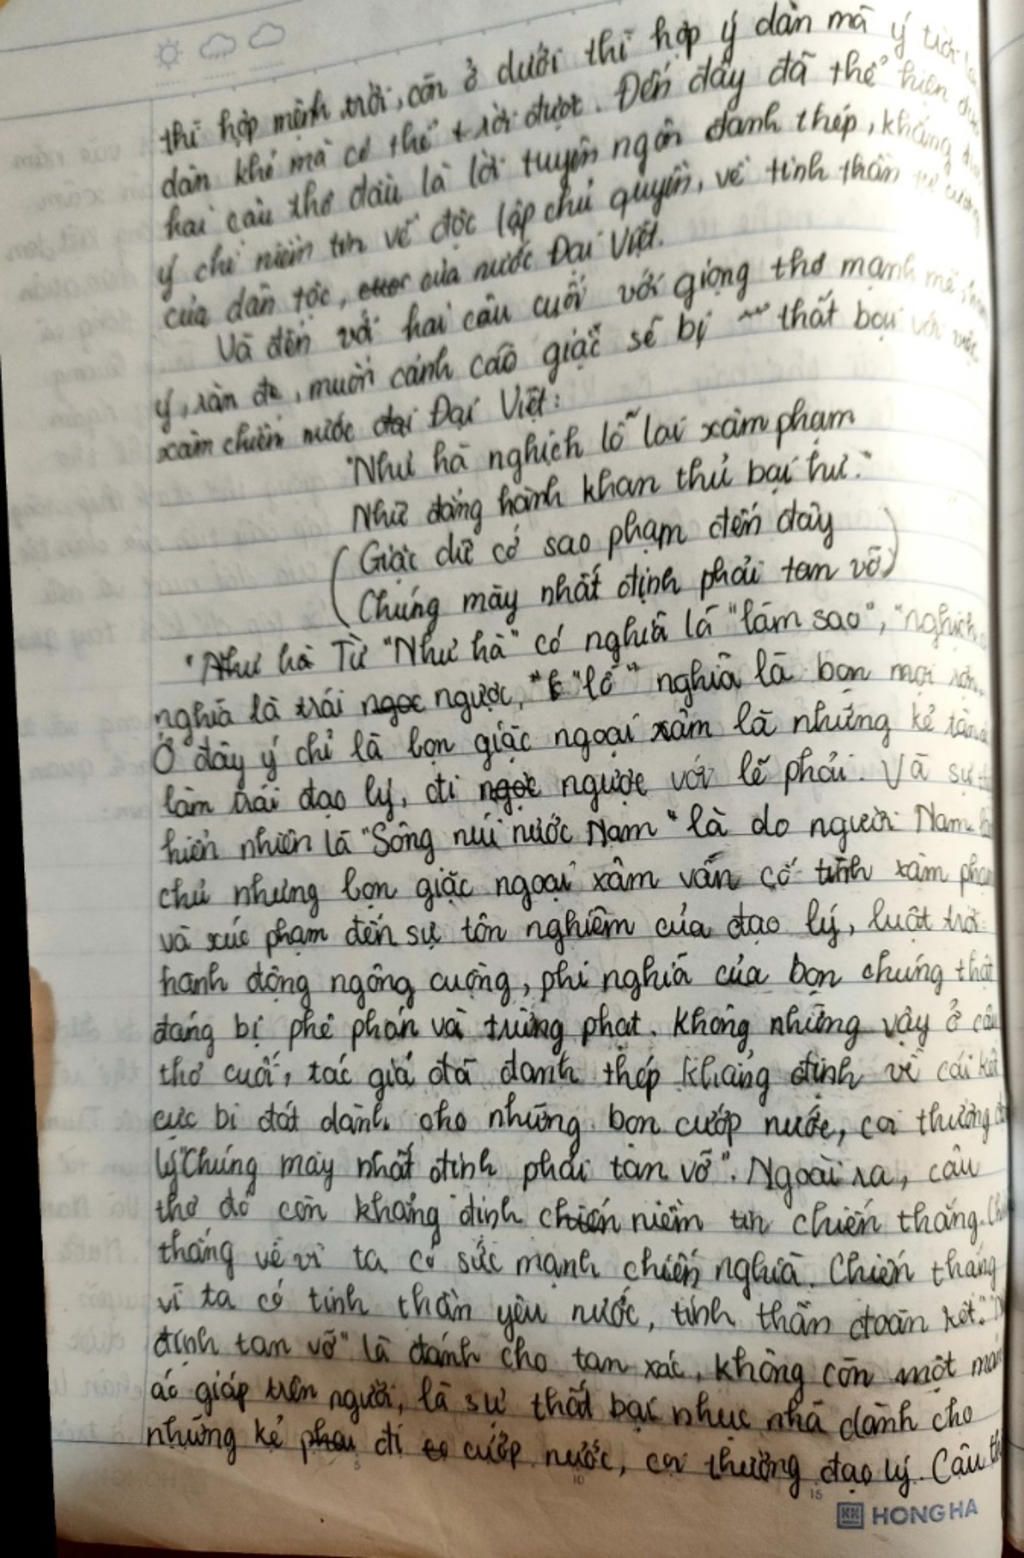 thì hợp mệnh trời, còn ở dưới thì hợp ý dân mà ý trời
dân khó mà có thể rời được. Đến đây đã thể hiện
hai câu thơ đầu là lời tuyên ngôn đanh thép, khẳng
ý chí niềm tin về độc lập chủ quyền, về tinh thần
của dân tộc, của nước Đại Việt.
Và đến với hai câu cuối với giọng thơ mạnh mẽ
ý, răn đe, muốn cảnh cáo giặc sẽ bị thất bại với việc
xâm chiến nước Đại Việt:
"Như hà nghịch lỗ lai xâm phạm
Nhữ đẳng hành khan thủ bại hư."
(Giặc dữ cớ sao phạm đến đây
Chúng mày nhất định phải tan vỡ)
Từ "Như hà" có nghĩa là "làm sao", "nghịch
nghĩa là trái ngược, "lỗ" nghĩa là bọn mọi rợn.
Ở đây ý chỉ là bọn giặc ngoại xâm là những kẻ
làm trái đạo lý, đi ngược với lẽ phải. Và sự
hiển nhiên là "Sông núi nước Nam" là do người Nam
chủ nhưng bọn giặc ngoại xâm vẫn cố tình xâm phạm
và xúc phạm đến sự tôn nghiêm của đạo lý, luật trời
hành động ngông cuồng, phi nghĩa của bọn chúng thật
đáng bị phê phán và trừng phạt. Không những vậy ở câu
thơ cuối, tác giả đã đanh thép khẳng định về cái kết
cục bi đát dành cho những bọn cướp nước, coi thường
lý "Chúng mày nhất định phải tan vỡ". Ngoài ra, câu
thơ đó còn khẳng định niềm tin chiến thắng.
thắng về vì ta có sức mạnh chiến nghĩa. Chiến thắng
vì ta có tinh thần yêu nước, tinh thần đoàn kết.
định tan vỡ" là đánh cho tan xác, không còn một mảnh
áo giáp trên người, là sự thất bại nhục nhã dành cho
những kẻ đi cướp nước, coi thường đạo lý. Câu
HONG HA